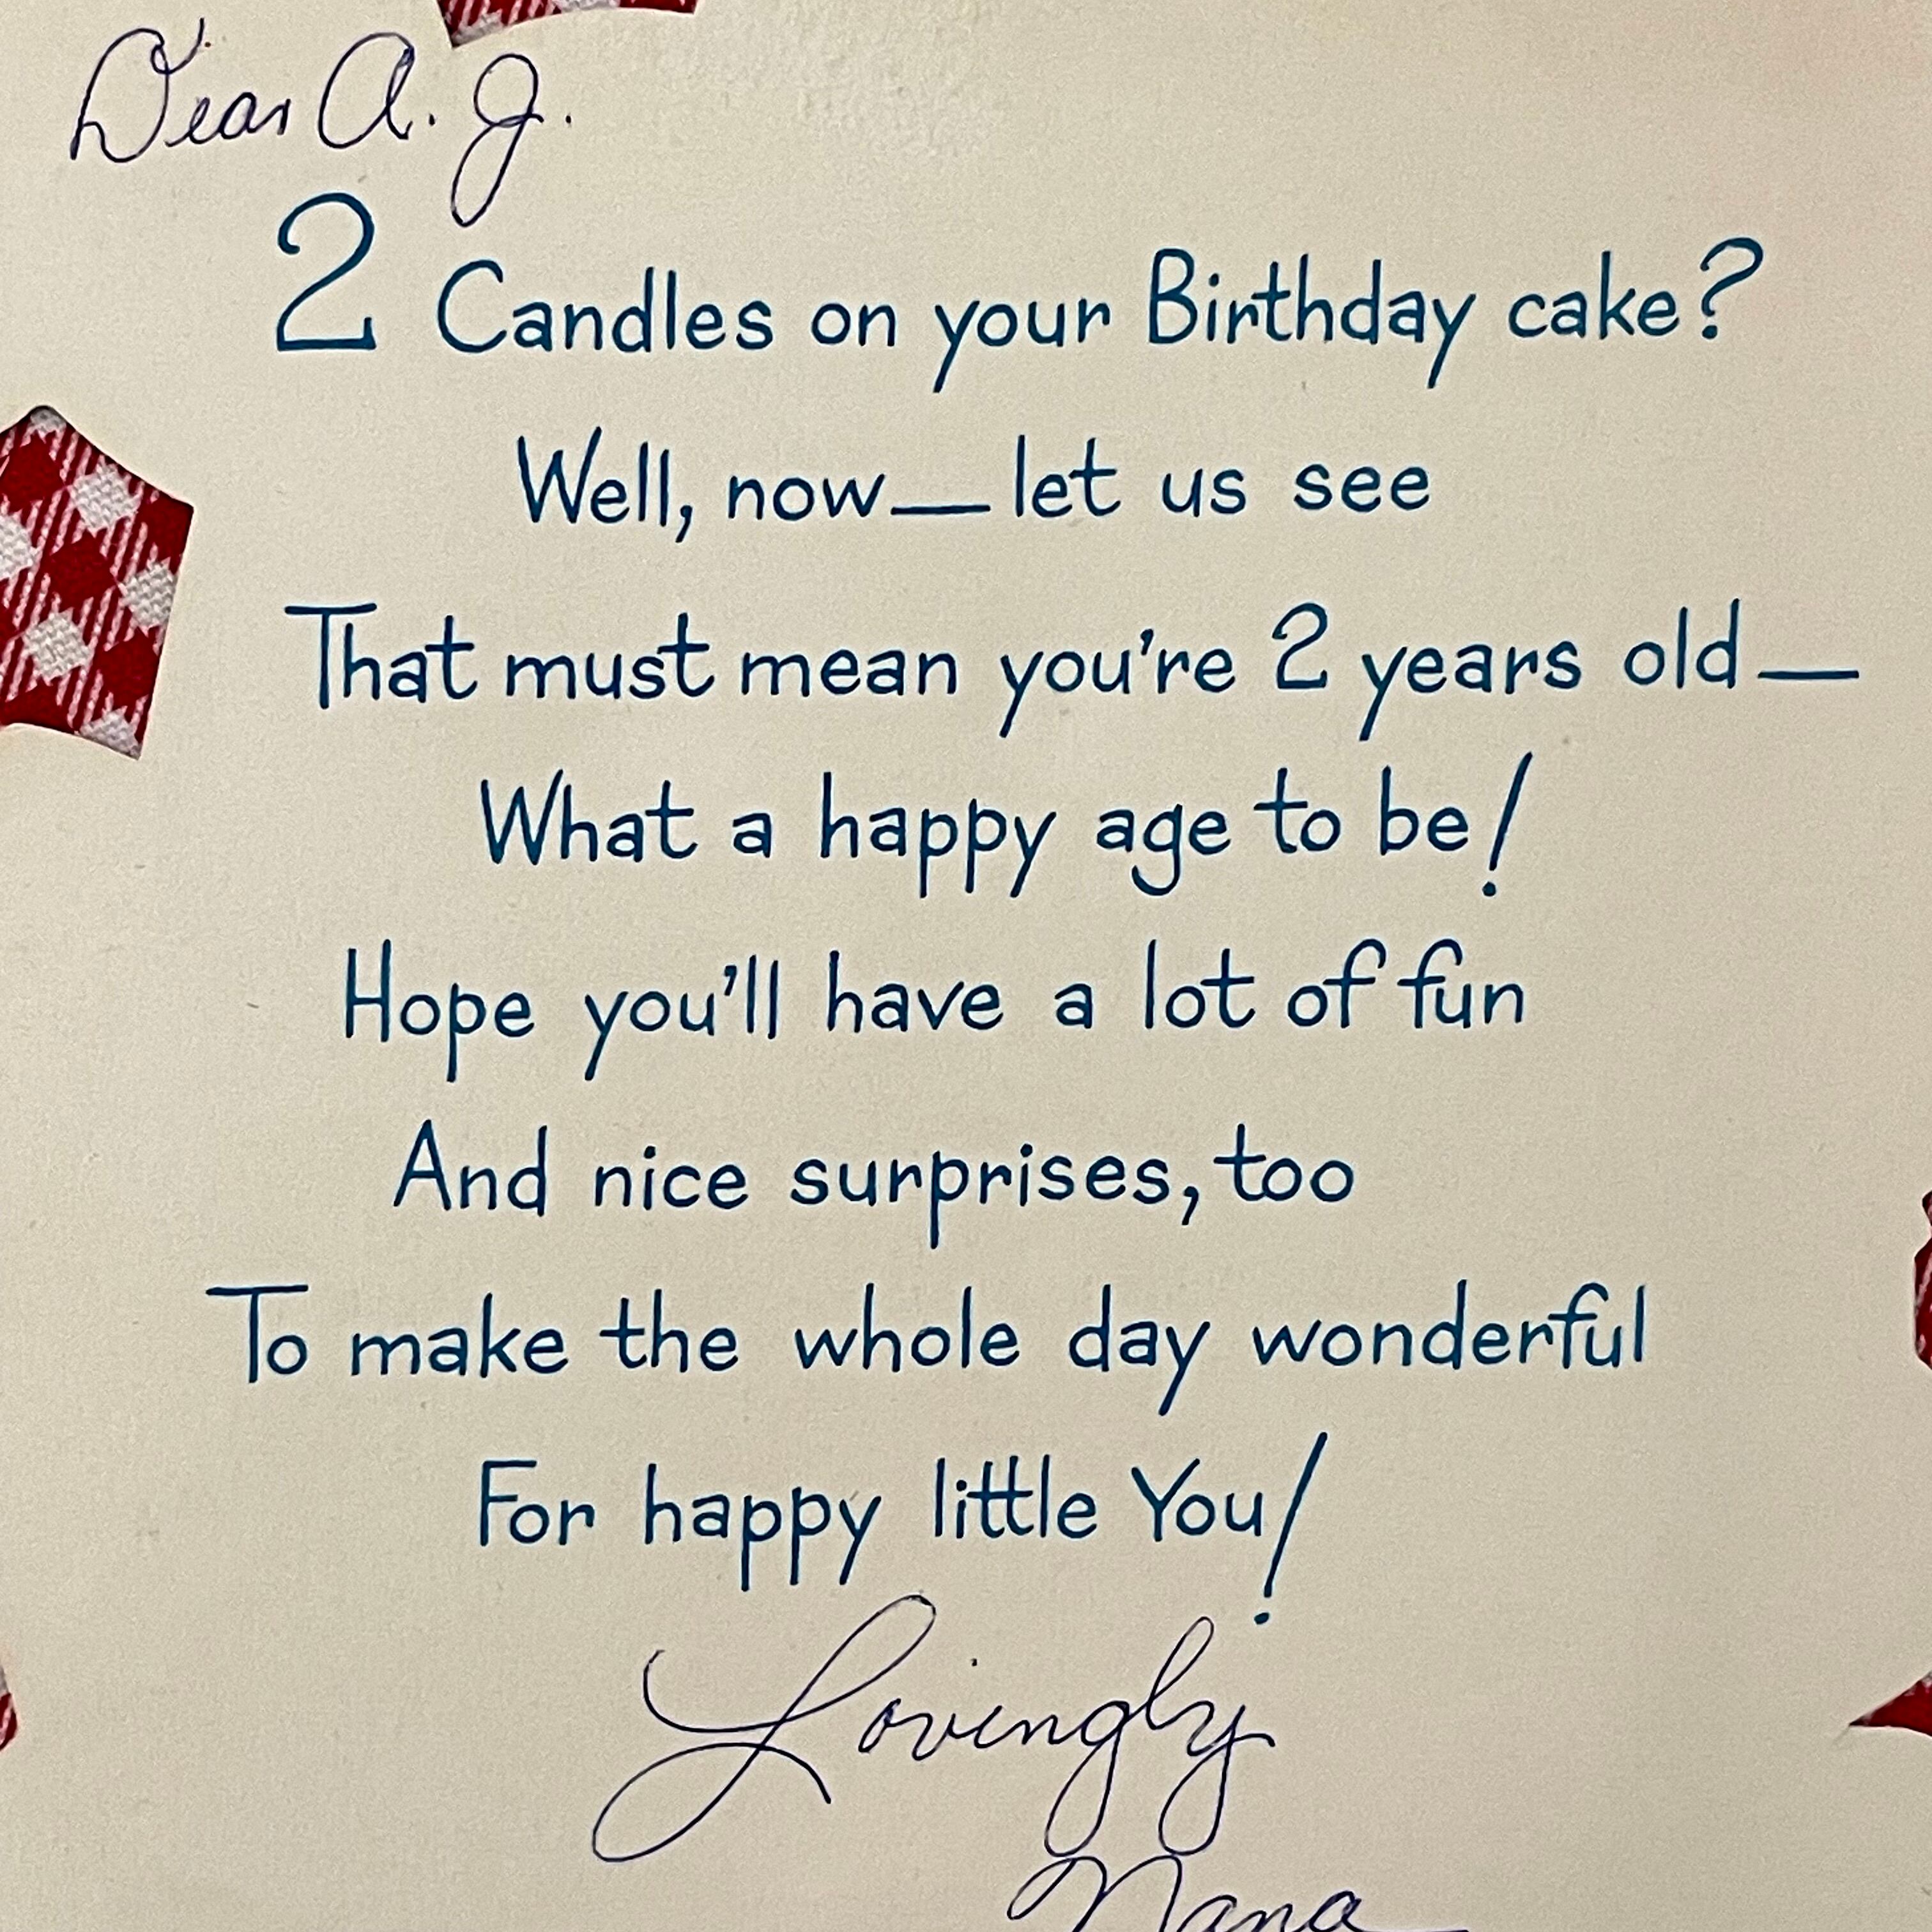 Dear A. J.
2 Candles on your Birthday cake?
Well, now — let us see
That must mean you're 2 years old —
What a happy age to be!
Hope you'll have a lot of fun
And nice surprises, too
To make the whole day wonderful
For happy little You!
Lovingly
Nana